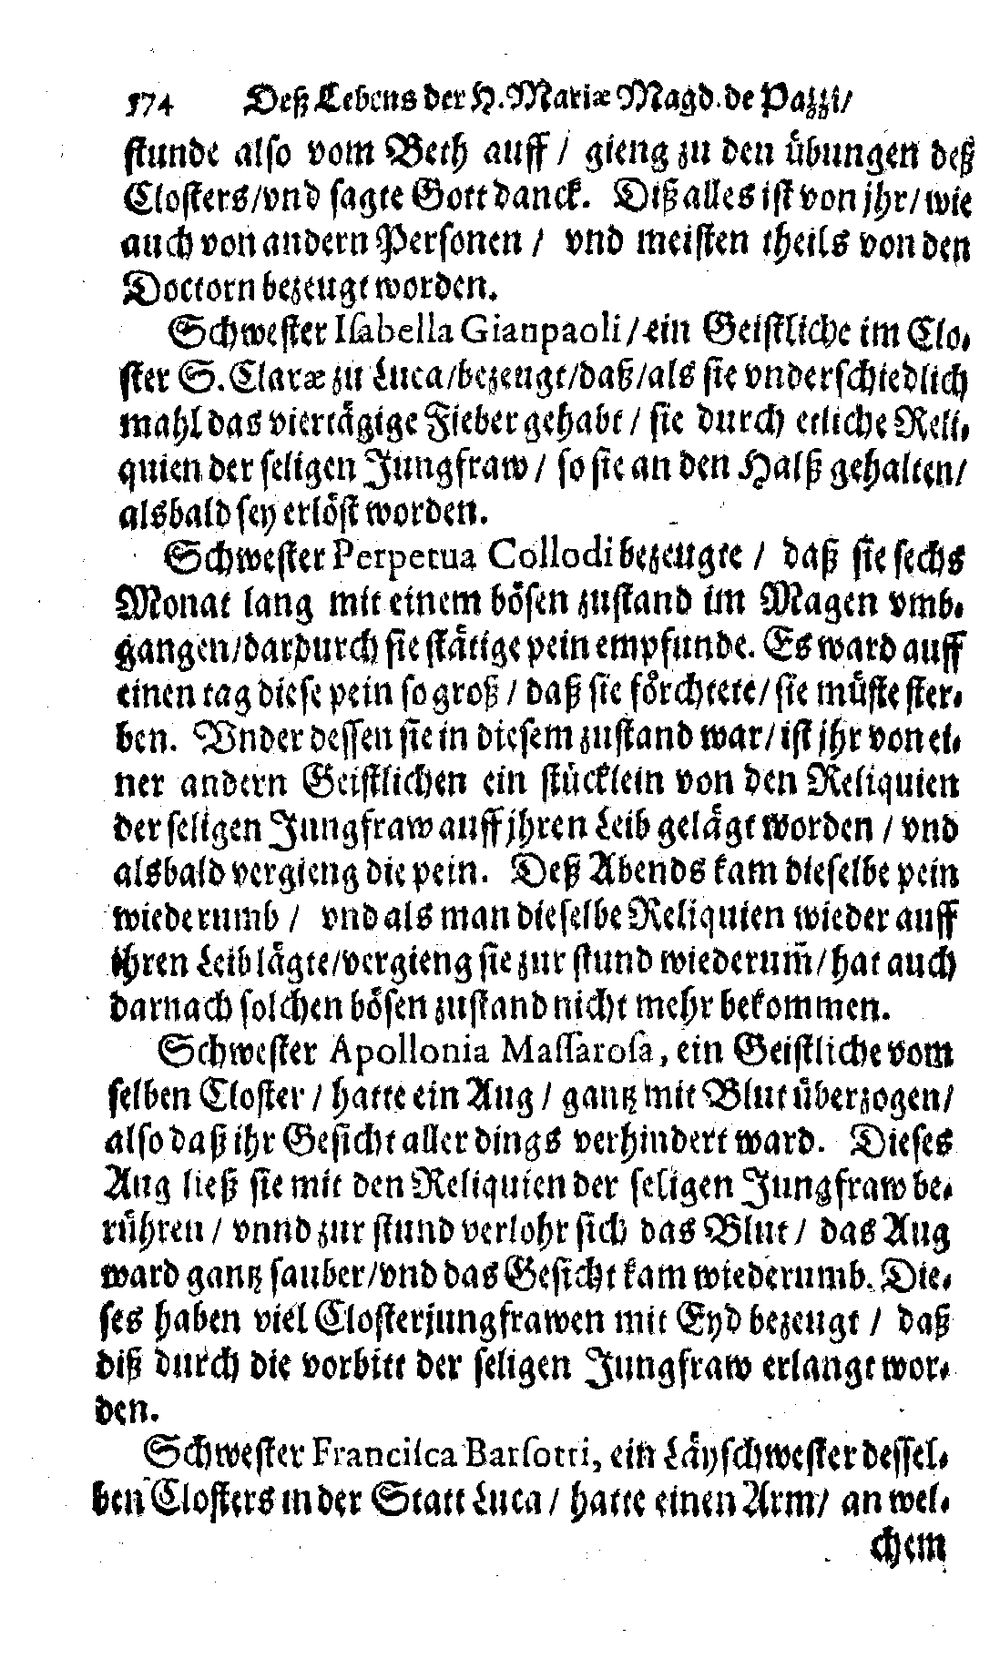 174 Deß Lebens der H. Mariæ Magd. de Pazzi/
stunde also vom Beth auff / gieng zu den übungen deß
Closters/vnd sagte Gott danck. Diß alles ist von jhr/ wie
auch von andern Personen / vnd meisten theils von den
Doctorn bezeugt worden.
Schwester Isabella Gianpaoli/ ein Geistliche im Clo-
ster S. Claræ zu Luca/bezeugt/daß/als sie vnderschiedlich
mahl das viertägige Fieber gehabt / sie durch etliche Reli-
quien der seligen Jungfraw / so sie an den Halß gehalten/
alsbald sey erlöst worden.
Schwester Perpetua Collodi bezeugte / daß sie sechs
Monat lang mit einem bösen zustand im Magen vmb-
gangen/dardurch sie stätige pein empfunde. Es ward auff
einen tag diese pein so groß / daß sie förchtete/ sie müste ster-
ben. Vnder dessen sie in diesem zustand war/ ist jhr von ei-
ner andern Geistlichen ein stücklein von den Reliquien
der seligen Jungfraw auff jhren Leib gelägt worden / vnd
alsbald vergieng die pein. Deß Abends kam dieselbe pein
wiederumb / vnd als man dieselbe Reliquien wieder auff
ihren Leib lägte/vergieng sie zur stund wiederum̃/ hat auch
darnach solchen bösen zustand nicht mehr bekommen.
Schwester Apollonia Massarosa, ein Geistliche vom
selben Closter / hatte ein Aug / gantz mit Blut überzogen/
also daß ihr Gesicht aller dings verhindert ward. Dieses
Aug ließ sie mit den Reliquien der seligen Jungfraw be-
rühren / vnnd zur stund verlohr sich das Blut / das Aug
ward gantz sauber/vnd das Gesicht kam wiederumb. Die-
ses haben viel Closterjungfrawen mit Eyd bezeugt / daß
diß durch die vorbitt der seligen Jungfraw erlangt wor-
den.
Schwester Francisca Barsotti, ein Läyschwester dessel-
ben Closters in der Statt Luca / hatte einen Arm/ an wel-
chem